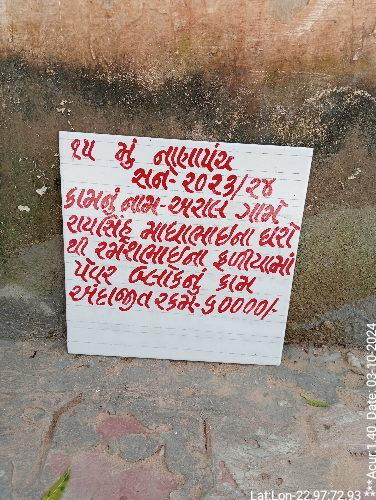 ૧૫ મું નાણાપંચ
સને-૨૦૨૩/૨૪
કામનું નામ-અરાલ ગામે
રાયસિંહ માધાભાઇના ઘરો
થી રમેશભાઈના ફળીયામાં
પેવર બ્લોકનું કામ
અંદાજીત રકમ-૬૦૦૦૦/-
Lat:Lon-22.97:72.93
***Acur 1.40 Date: 03-10-2024